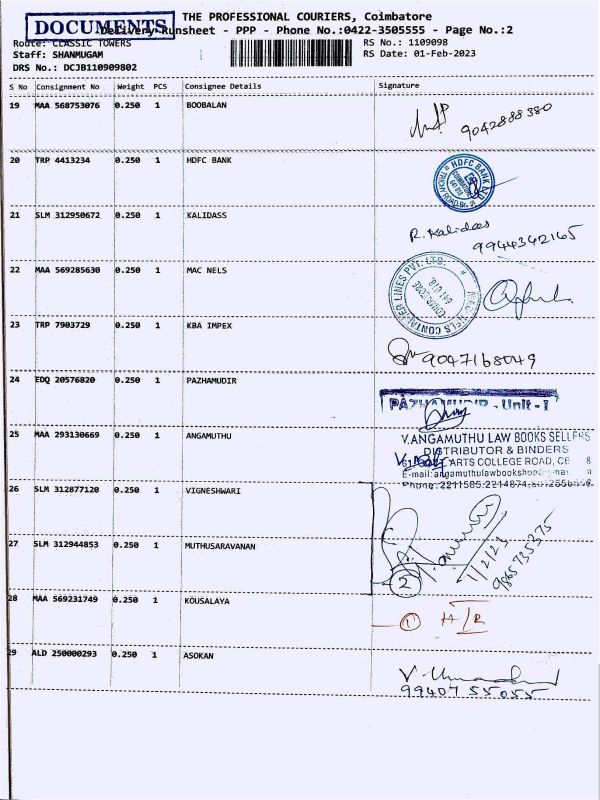 DOCUMENTS
THE PROFESSIONAL COURIERS, Coimbatore
Delivery Runsheet - PPP - Phone No.:0422-3505555 - Page No.:2
Route: CLASSIC TOWERS RS No.: 1109098
Staff: SHANMUGAM RS Date: 01-Feb-2023
DRS No.: DCJB110909802
S No Consignment No Weight PCS Consignee Details Signature
19 MAA 568753076 0.250 1 BOOBALAN
9042888380
20 TRP 4413234 0.250 1 HDFC BANK
HDFC BANK LTD
COIMBATORE
TRICHY ROAD
21 SLM 312950672 0.250 1 KALIDASS
R. Kalidas
9944342165
22 MAA 569285630 0.250 1 MAC NELS
MAC NELS CONTAINER LINES PVT. LTD.
COIMBATORE
641 018.
23 TRP 7903729 0.250 1 KBA IMPEX
9047168049
24 EDQ 20576820 0.250 1 PAZHAMUDIR
PAZHAMUDIR - Unit - I
25 MAA 293130669 0.250 1 ANGAMUTHU
V.ANGAMUTHU LAW BOOKS SELLERS
DISTRIBUTOR & BINDERS
ARTS COLLEGE ROAD,
E-mail:angamuthulawbookshop
Phone:2211585,2214874,
26 SLM 312877120 0.250 1 VIGNESHWARI
27 SLM 312944853 0.250 1 MUTHUSARAVANAN
2
1/2/23
9865735375
28 MAA 569231749 0.250 1 KOUSALAYA
1 H/R
29 ALD 250000293 0.250 1 ASOKAN
99407 55055